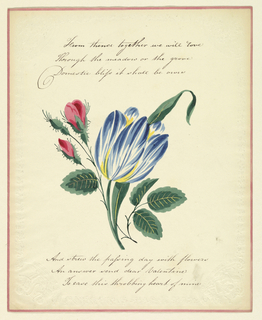 From thence together we will rove
Through the meadow or the grove
Domestic bliss it shall be ours
And strew the passing day with flowers
An answer send dear Valentine
To ease this throbbing heart of mine